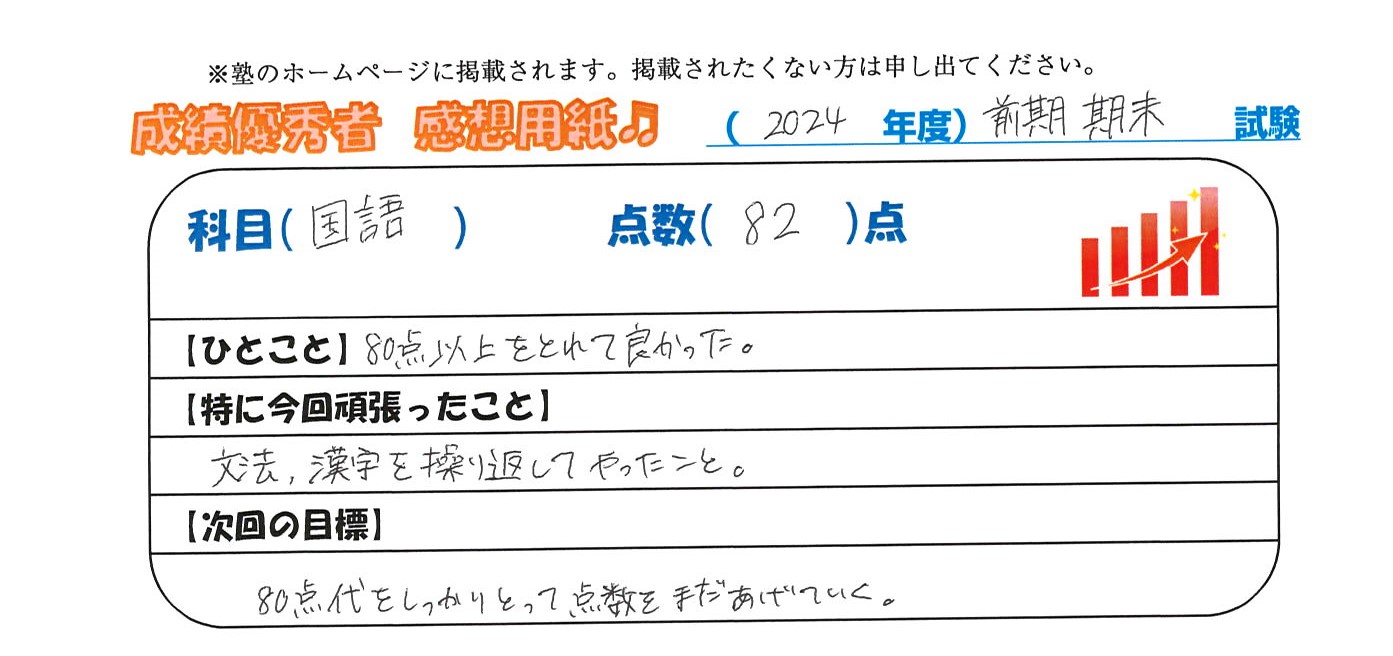 ※塾のホームページに掲載されます。掲載されたくない方は申し出てください。
成績優秀者 感想用紙♫ (2024 年度)前期 期末 試験
科目(国語) 点数(82)点
【ひとこと】80点以上をとれて良かった。
【特に今回頑張ったこと】
文法,漢字を繰り返してやったこと。
【次回の目標】
80点代をしっかりとって点数をまだあげていく。